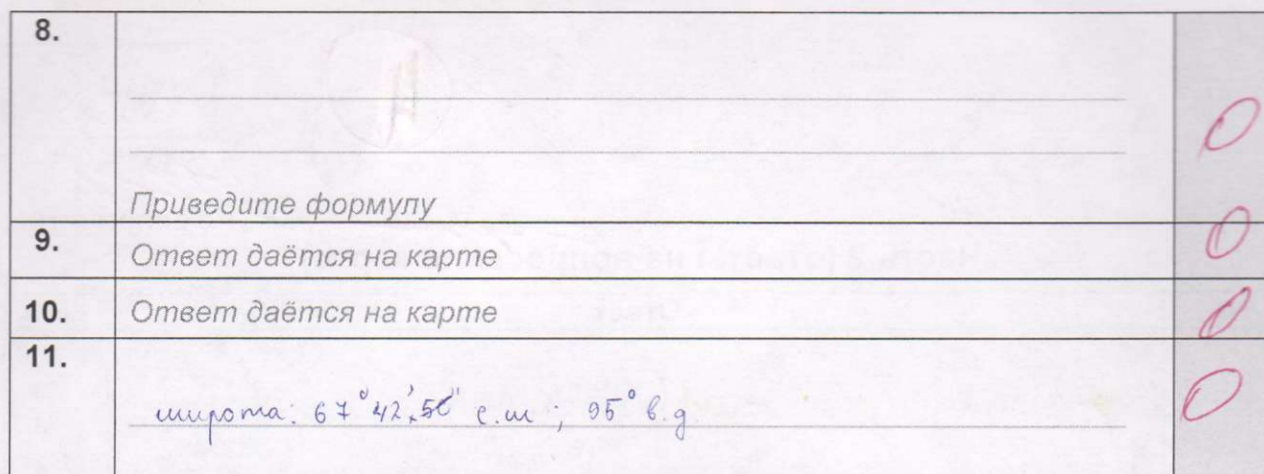 8.
0
Приведите формулу
9.
Ответ даётся на карте
0
10.
Ответ даётся на карте
0
11.
широта: 67°42' с.ш.; 95° в.д
0